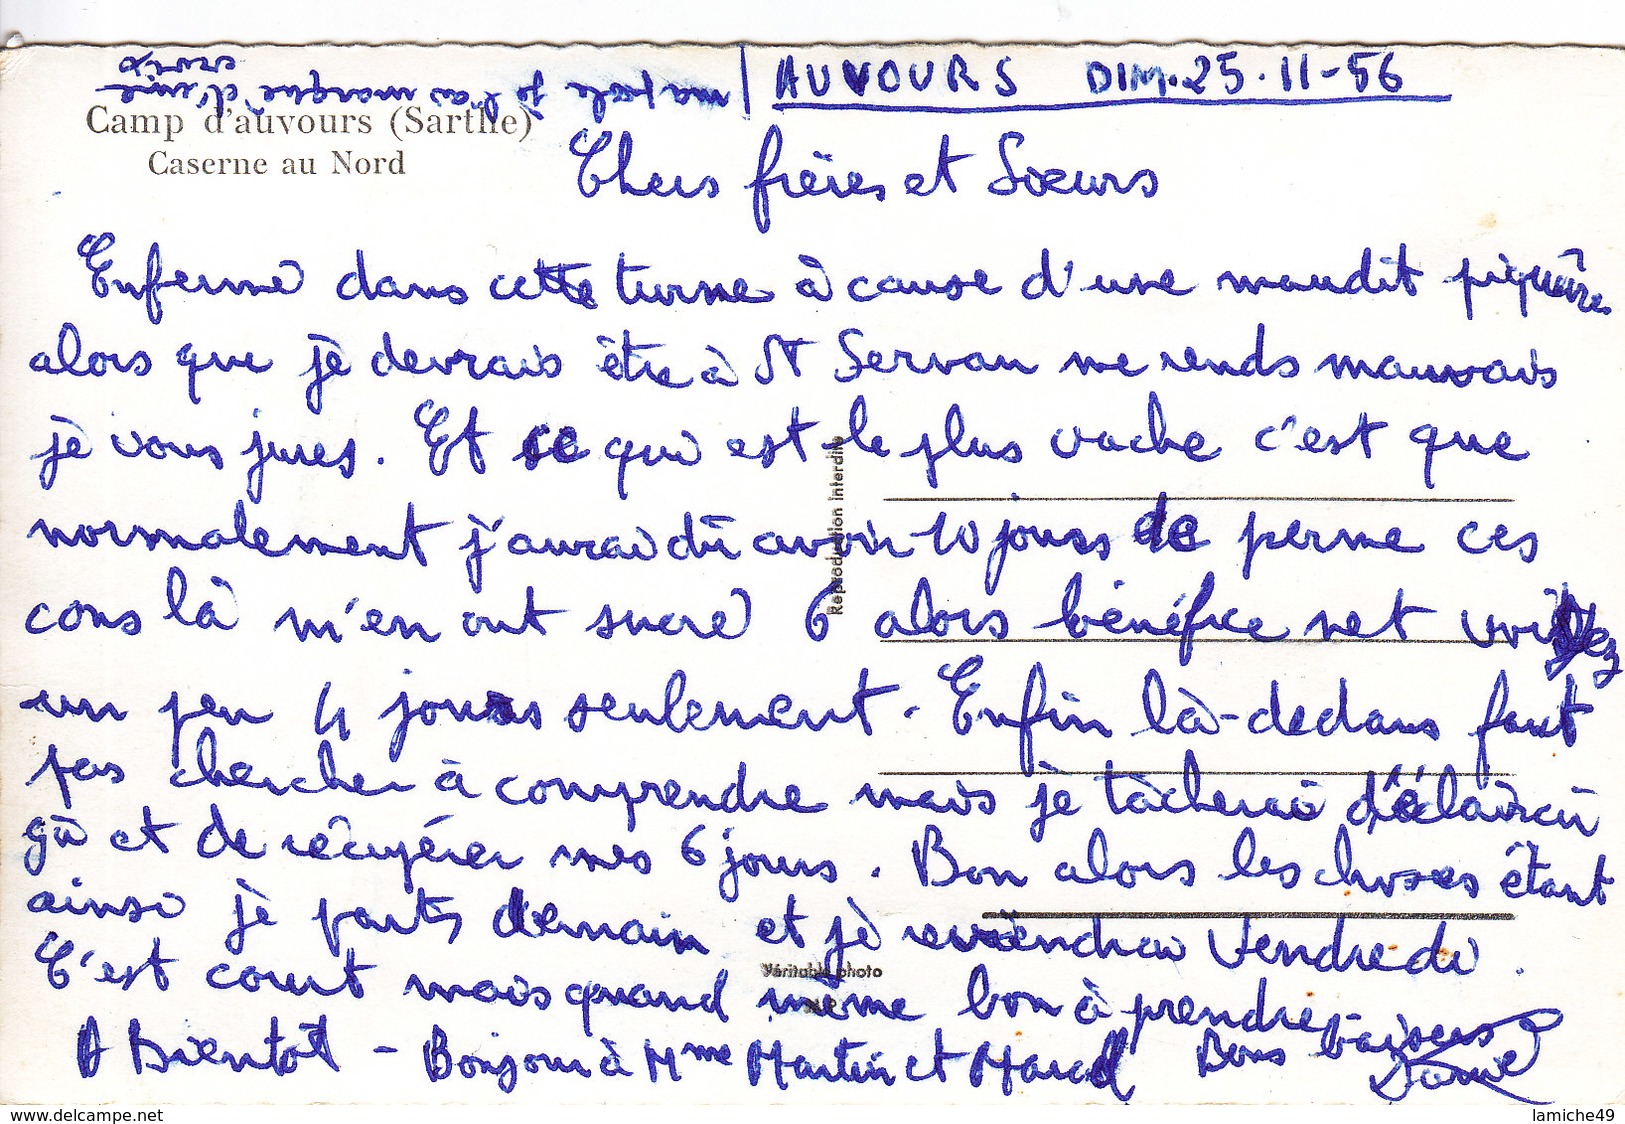 AUVOURS DIM. 25-11-56
ma piaule je l'ai marqué d'une croix
Camp d'auvours (Sarthe)
Caserne au Nord
Chers frères et Soeurs
Enfermé dans cette turne à cause d'une maudit piqûres
alors que je devrais être à St Servan me rends mauvais
je vous jures. Et ce qui est le plus vache c'est que
normalement j'aurai dû avoir 10 jours de perme ces
cons là m'en ont sucré 6 alors bénéfice net voyez
un peu 4 jours seulement. Enfin là-dedans faut
pas chercher à comprendre mais je tâcherai d'éclaircir
ça et de récupérer mes 6 jours. Bon alors les choses étant
ainsi je parts demain et je reviendrai Vendredi.
C'est court mais quand même bon à prendre
A Bientôt - Bonjour à Mme Martin et Marcel Bons baisers
Reproduction interdite
Véritable photo
www.delcampe.net
lamiche49